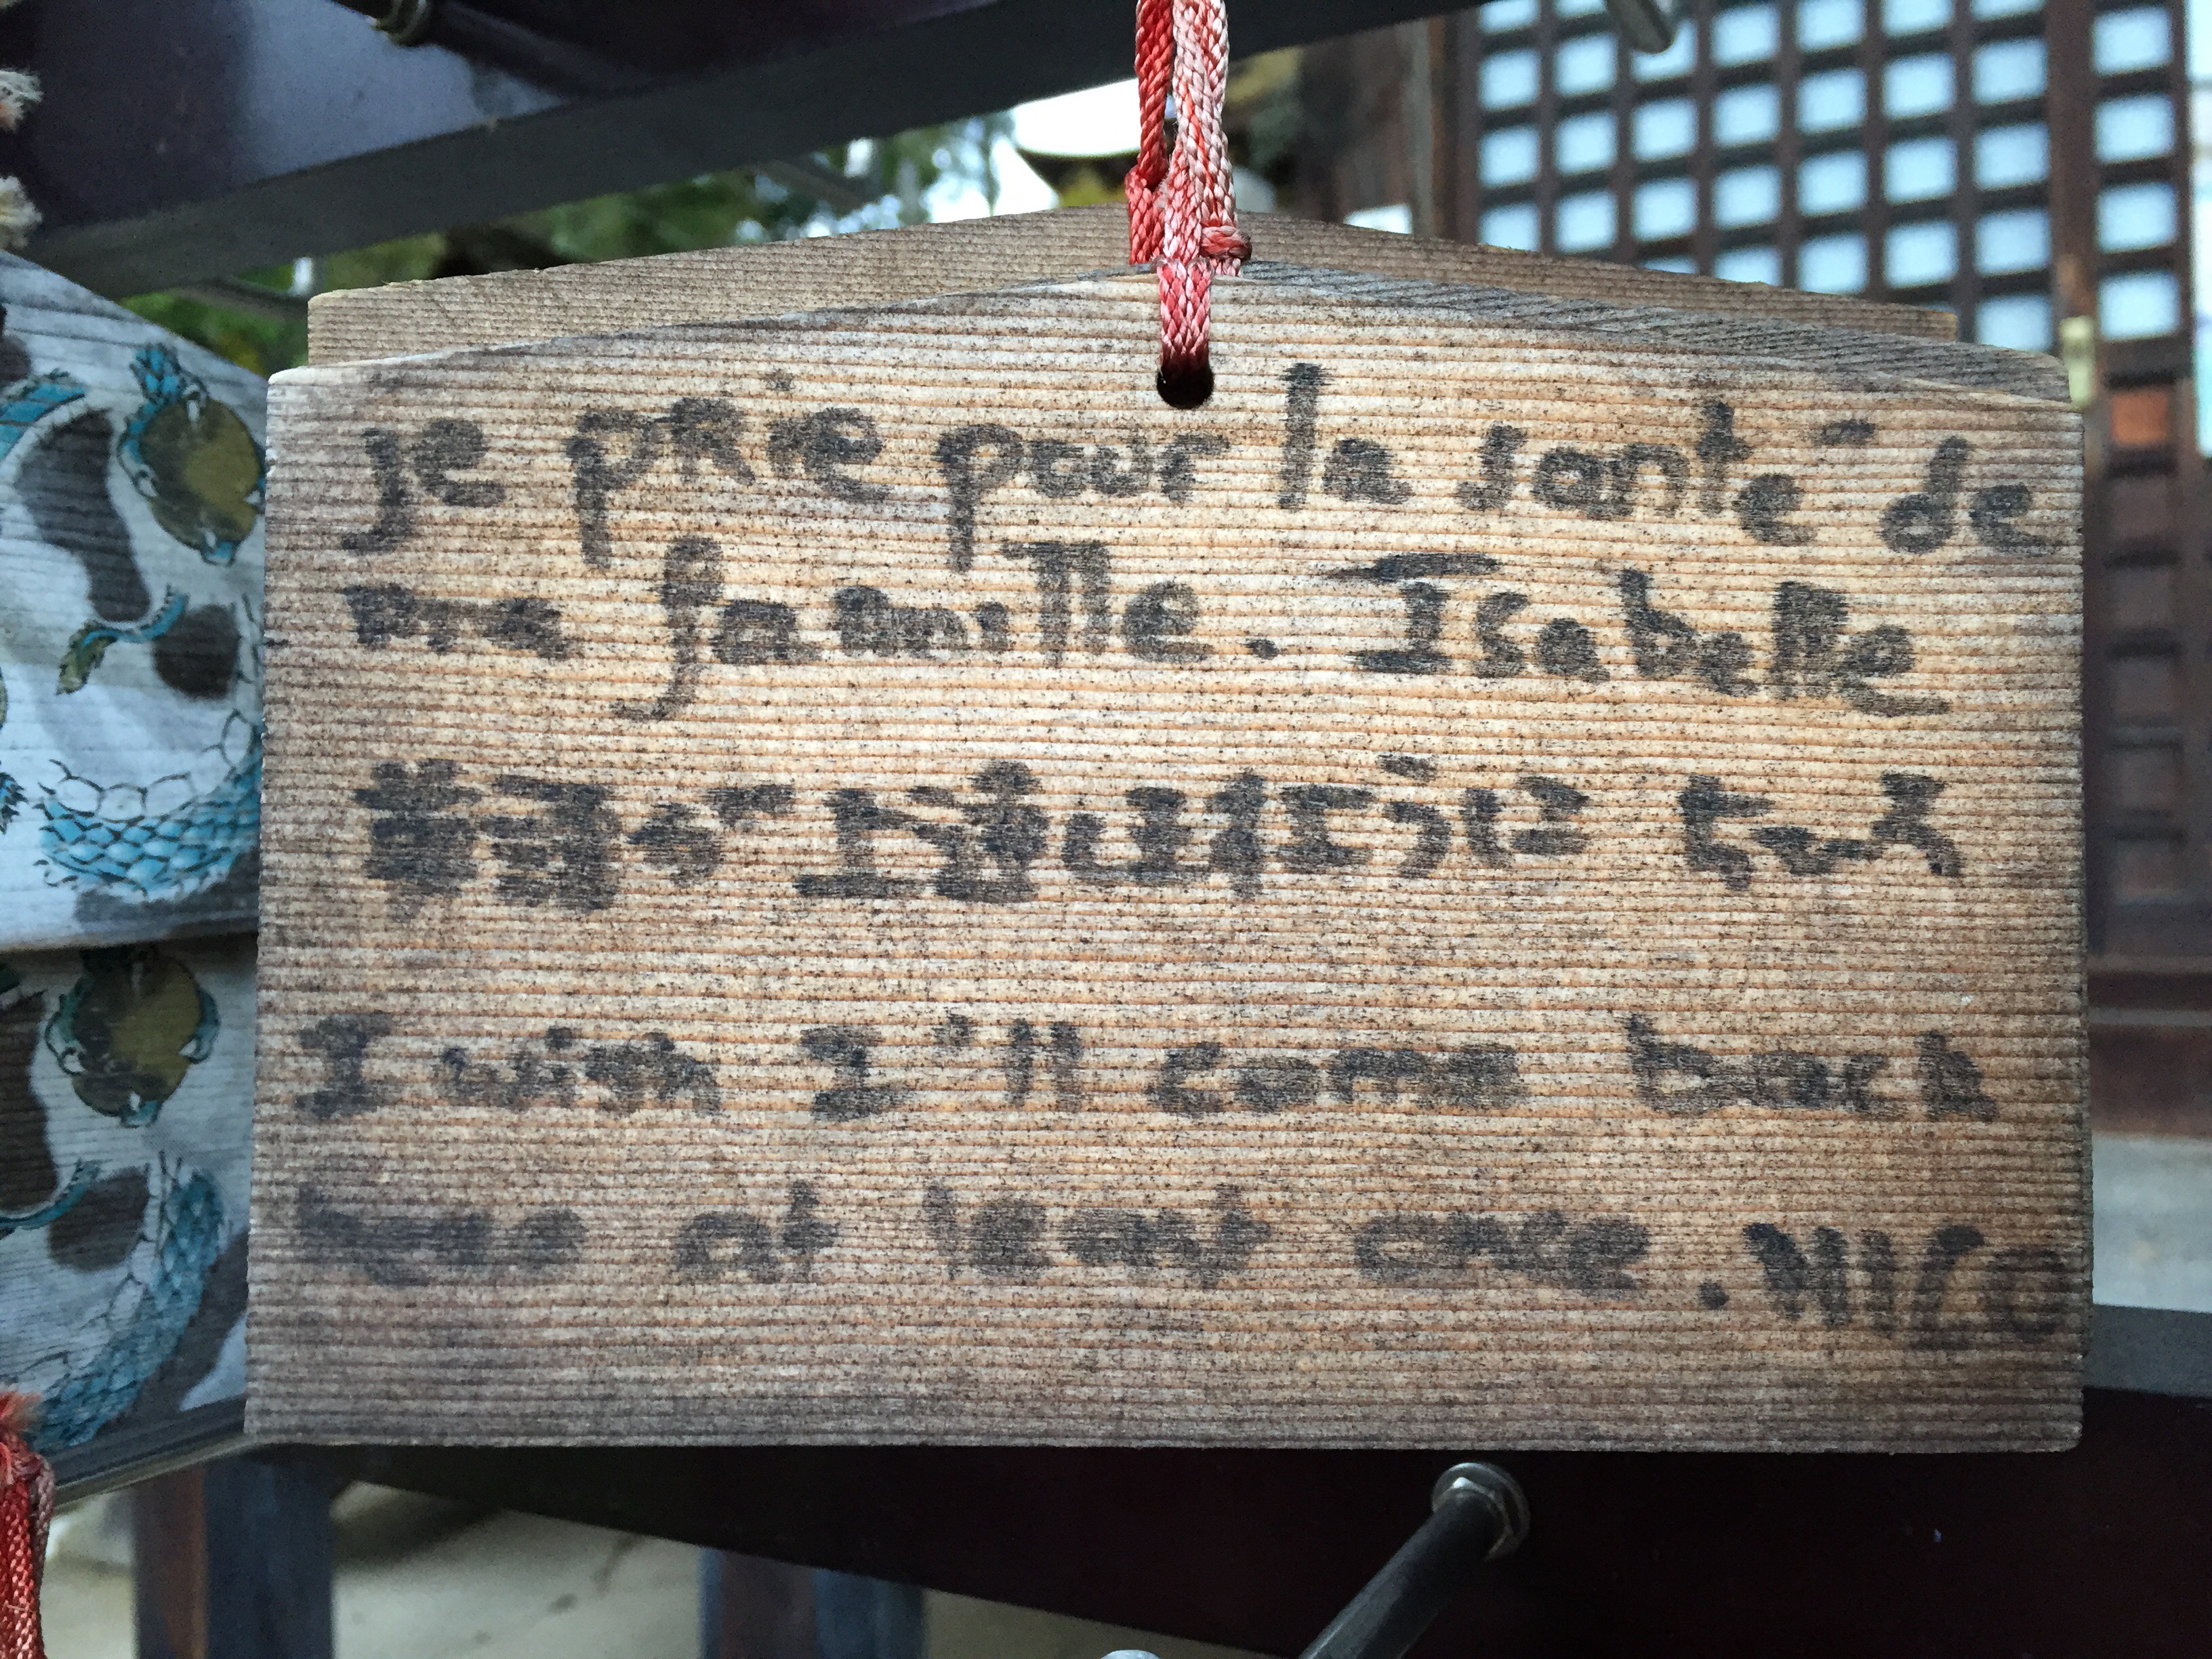 je prie pour la santé de
ma famille. Isabelle
I wish I'll come back
here at least once. NICO